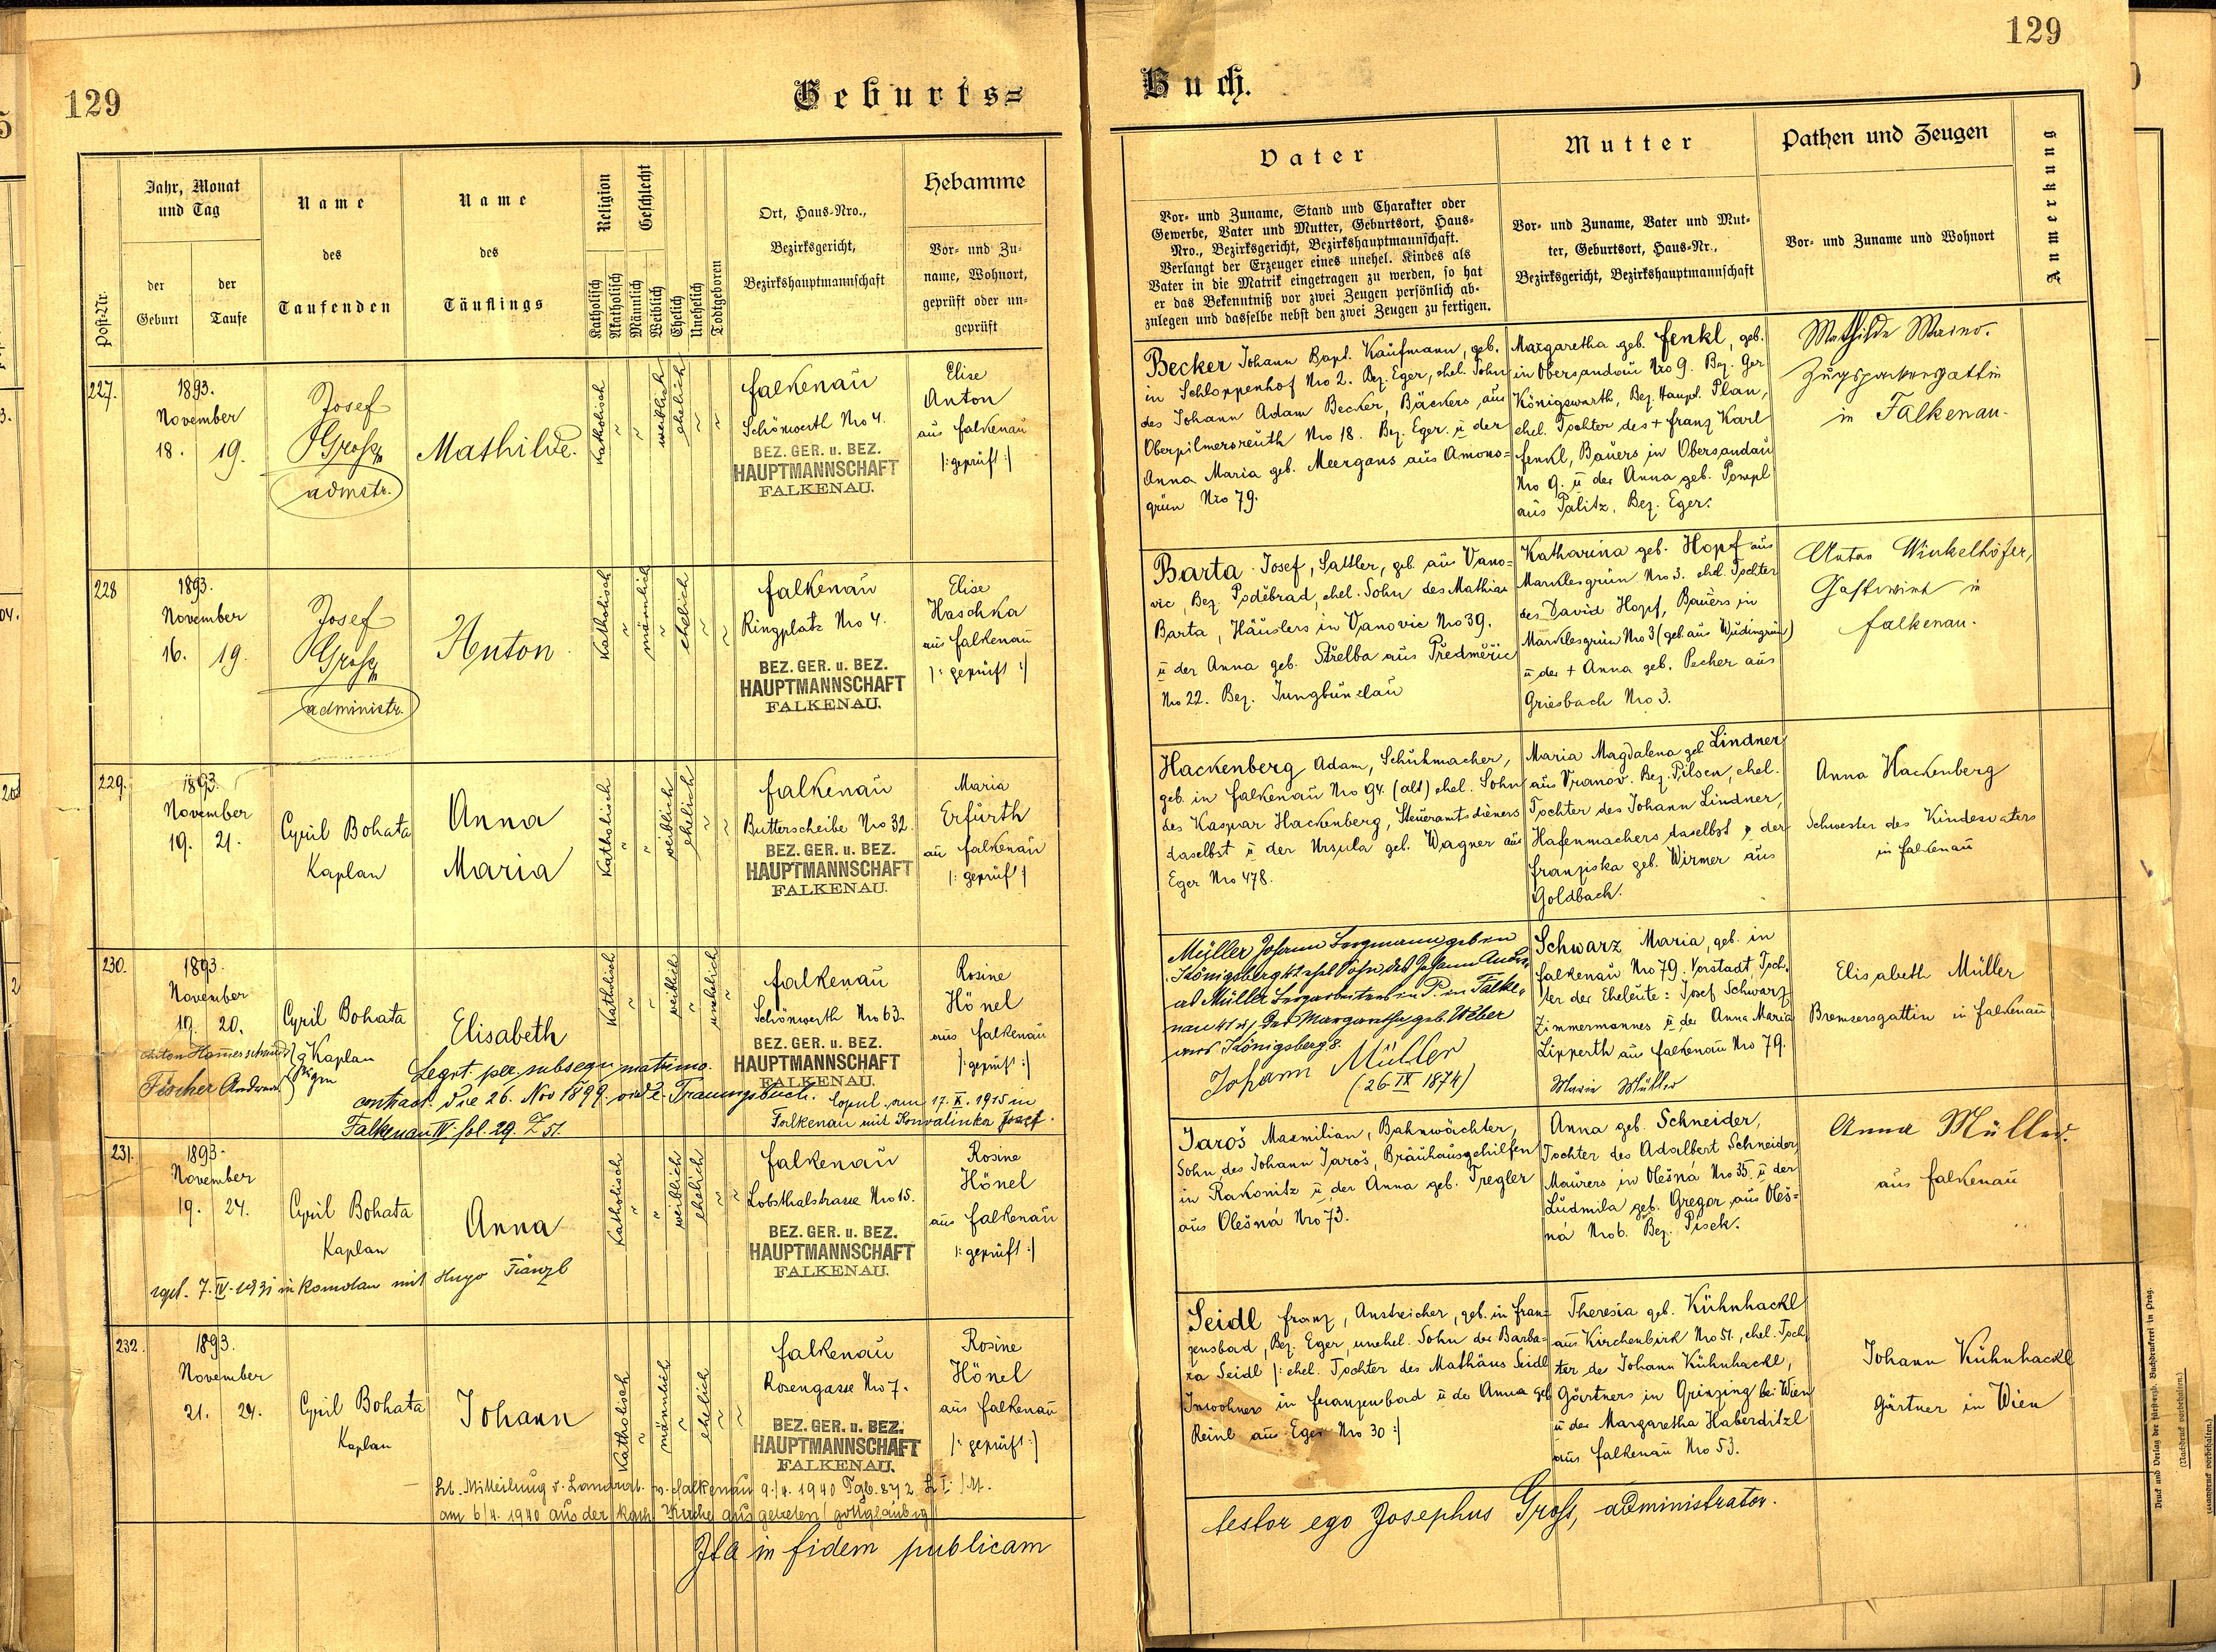 129
Geburts=
Post-Nr.
Jahr, Monat
und Tag
der
Geburt
der
Taufe
Name
des
Taufenden
Name
des
Täuflings
Religion
Katholisch
Akatholisch
Geschlecht
Männlich
Weiblich
Ehelich
Unehelich
Todtgeboren
Ort, Haus-Nro.,
Bezirksgericht,
Bezirkshauptmannschaft
Hebamme
Vor- und Zu-
name, Wohnort,
geprüft oder un-
geprüft
227.
1893.
November
18. 19.
Josef
Gross
admstr.
Mathilde.
Katholisch
weiblich
ehelich
Falkenau
Schönwerth Nro 4.
BEZ. GER. u. BEZ.
HAUPTMANNSCHAFT
FALKENAU.
Elise
Anton
aus Falkenau
/: geprüft :/
228
1893.
November
16. 19.
Josef
Gross
administr.
Anton
Katholisch
männlich
ehelich
Falkenau
Ringplatz Nro 4.
BEZ. GER. u. BEZ.
HAUPTMANNSCHAFT
FALKENAU.
Elise
Haschka
aus Falkenau
/: geprüft :/
229.
1893.
November
19. 21.
Cyril Bohata
Kaplan
Anna
Maria
Katholisch
weiblich
ehelich
Falkenau
Butterscheibe Nro 32.
BEZ. GER. u. BEZ.
HAUPTMANNSCHAFT
FALKENAU.
Maria
Erfurth
aus Falkenau
/: geprüft :/
230.
1893.
November
19. 20.
Cyril Bohata
Kaplan
Fischer Andreas
Elisabeth
Katholisch
weiblich
unehelich
Falkenau
Schönwerth Nro 63.
BEZ. GER. u. BEZ.
HAUPTMANNSCHAFT
FALKENAU.
Rosine
Hönel
aus Falkenau
/: geprüft :/
Legit. per subsequ matrimo.
contract. die 26. Nov 1899. vide Trauungsbuch.
Falkenau IV. fol. 29. Z 51.
Copul. am 17. X. 1915 in
Falkenau mit Konvalinka Josef.
231.
1893.
November
19. 24.
Cyril Bohata
Kaplan
Anna
Katholisch
weiblich
ehelich
Falkenau
Lobsthalstrasse Nro 15.
BEZ. GER. u. BEZ.
HAUPTMANNSCHAFT
FALKENAU.
Rosine
Hönel
aus Falkenau
/: geprüft :/
7. IV. 1931 in Komotau mit Hugo
232.
1893.
November
21. 24.
Cyril Bohata
Kaplan
Johann
Katholisch
männlich
ehelich
Falkenau
Rosengasse Nro 7.
BEZ. GER. u. BEZ.
HAUPTMANNSCHAFT
FALKENAU.
Rosine
Hönel
aus Falkenau
/: geprüft :/
Lt. Mitteilung v. Landrat. v. Falkenau 9./4. 1940 Tgb. 872
am 6/4. 1940 aus der kath Kirche ausgetreten (gottgläubig)
Ita in fidem publicam
129
Buch.
Vater
Vor- und Zuname, Stand und Charakter oder
Gewerbe, Vater und Mutter, Geburtsort, Haus-
Nro., Bezirksgericht, Bezirkshauptmannschaft.
Verlangt der Erzeuger eines unehel. Kindes als
Vater in die Matrik eingetragen zu werden, so hat
er das Bekenntniß vor zwei Zeugen persönlich ab-
zulegen und dasselbe nebst den zwei Zeugen zu fertigen.
Mutter
Vor- und Zuname, Vater und Mut-
ter, Geburtsort, Haus-Nr.,
Bezirksgericht, Bezirkshauptmannschaft
Pathen und Zeugen
Vor- und Zuname und Wohnort
Anmerkung
Becker Johann Bapt. Kaufmann, geb.
in Schloppenhof Nro 2. Bez. Eger, ehel. Sohn
des Johann Adam Becker, Bäckers aus
Oberpilmersreuth Nro 18. Bez. Eger. u der
Anna Maria geb. Meergans aus Amons=
grün Nro 79.
Margaretha geb. Fenkl, geb.
in Obersandau Nro 9. Bez. Ger
Königswarth, Bez. Haupt. Plan,
ehel. Tochter des + Franz Karl
Fenkl, Bauers in Obersandau
Nro 9. u der Anna geb.
aus Palitz, Bez. Eger.
Mathilde
in Falkenau.
Barta Josef, Sattler, geb. aus Vano=
vic, Bez. Poděbrad, ehel. Sohn des Mathias
Barta, Häuslers in Vanovic Nro 39.
u der Anna geb. Střelba aus Předměřic
Nro 22. Bez. Jungbunzlau
Katharina geb. Hopf aus
Marklesgrün Nro 3. ehel. Tochter
des David Hopf, Bauers in
Marklesgrün Nro 3 (geb. aus Wudingrün)
u der + Anna geb. Pecher aus
Griesbach Nro 3.
Anton Winkelhöfer,
Gastwirt in
Falkenau.
Hackenberg Adam, Schuhmacher,
geb. in Falkenau Nro 94. (alt) ehel. Sohn
des Kaspar Hackenberg, Steueramtsdieners
daselbst u der Ursula geb. Wagner aus
Eger Nro 478.
Maria Magdalena geb. Lindner
aus Vranov. Bez. Pilsen, ehel.
Tochter des Johann Lindner,
Hafenmachers daselbst u der
Franziska geb. Wirmer aus
Goldbach.
Anna Hackenberg
Schwester des Kindesvaters
in Falkenau
Müller Johann Bergmann geb in
Königsberg ehel Sohn des Johann
Müller Bergarbeiters in Falke=
nau der Margaretha geb. Weber
aus Königsberg 8.
Johann Müller
(26 IX 1874)
Schwarz Maria, geb. in
Falkenau Nro 79. Vorstadt, Toch=
ter der Eheleute: Josef Schwarz
Zimmermannes u der Anna Maria
Lipperth aus Falkenau Nro 79.
Marie Müller
Elisabeth Müller
Bremsersgattin in Falkenau
Jaroš Maxmilian, Bahnwächter,
Sohn des Johann Jaroš, Bräuhausgehilfen
in Rakonitz u der Anna geb. Tregler
aus Olešná Nro 73.
Anna geb. Schneider,
Tochter des Adalbert Schneider,
Maurers in Olešná Nro 35. u der
Ludmila geb. Gregor aus Oleš=
ná Nro 6. Bez. Pisek.
Anna Müller
aus Falkenau
Seidl Franz, Anstreicher, geb. in Fran=
zensbad, Bez. Eger, unehel. Sohn der Barba=
ra Seidl /: ehel. Tochter des Mathäus Seidl
Inwohners in Franzensbad u der Anna geb
Reinl aus Eger Nro 30 :/
Theresia geb. Kühnhackl
aus Kirchenbirk Nro 51., ehel. Toch=
ter de Johann Kühnhackl,
Gärtners in Grinzing bei Wien
u der Margaretha Haberditzl
aus Falkenau Nro 53.
Johann Kühnhackl
Gärtner in Wien
testor ego Josephus Gross, administrator.
Druck und Verlag der fürsterzb. Buchdruckerei in Prag.
(Nachdruck vorbehalten.)